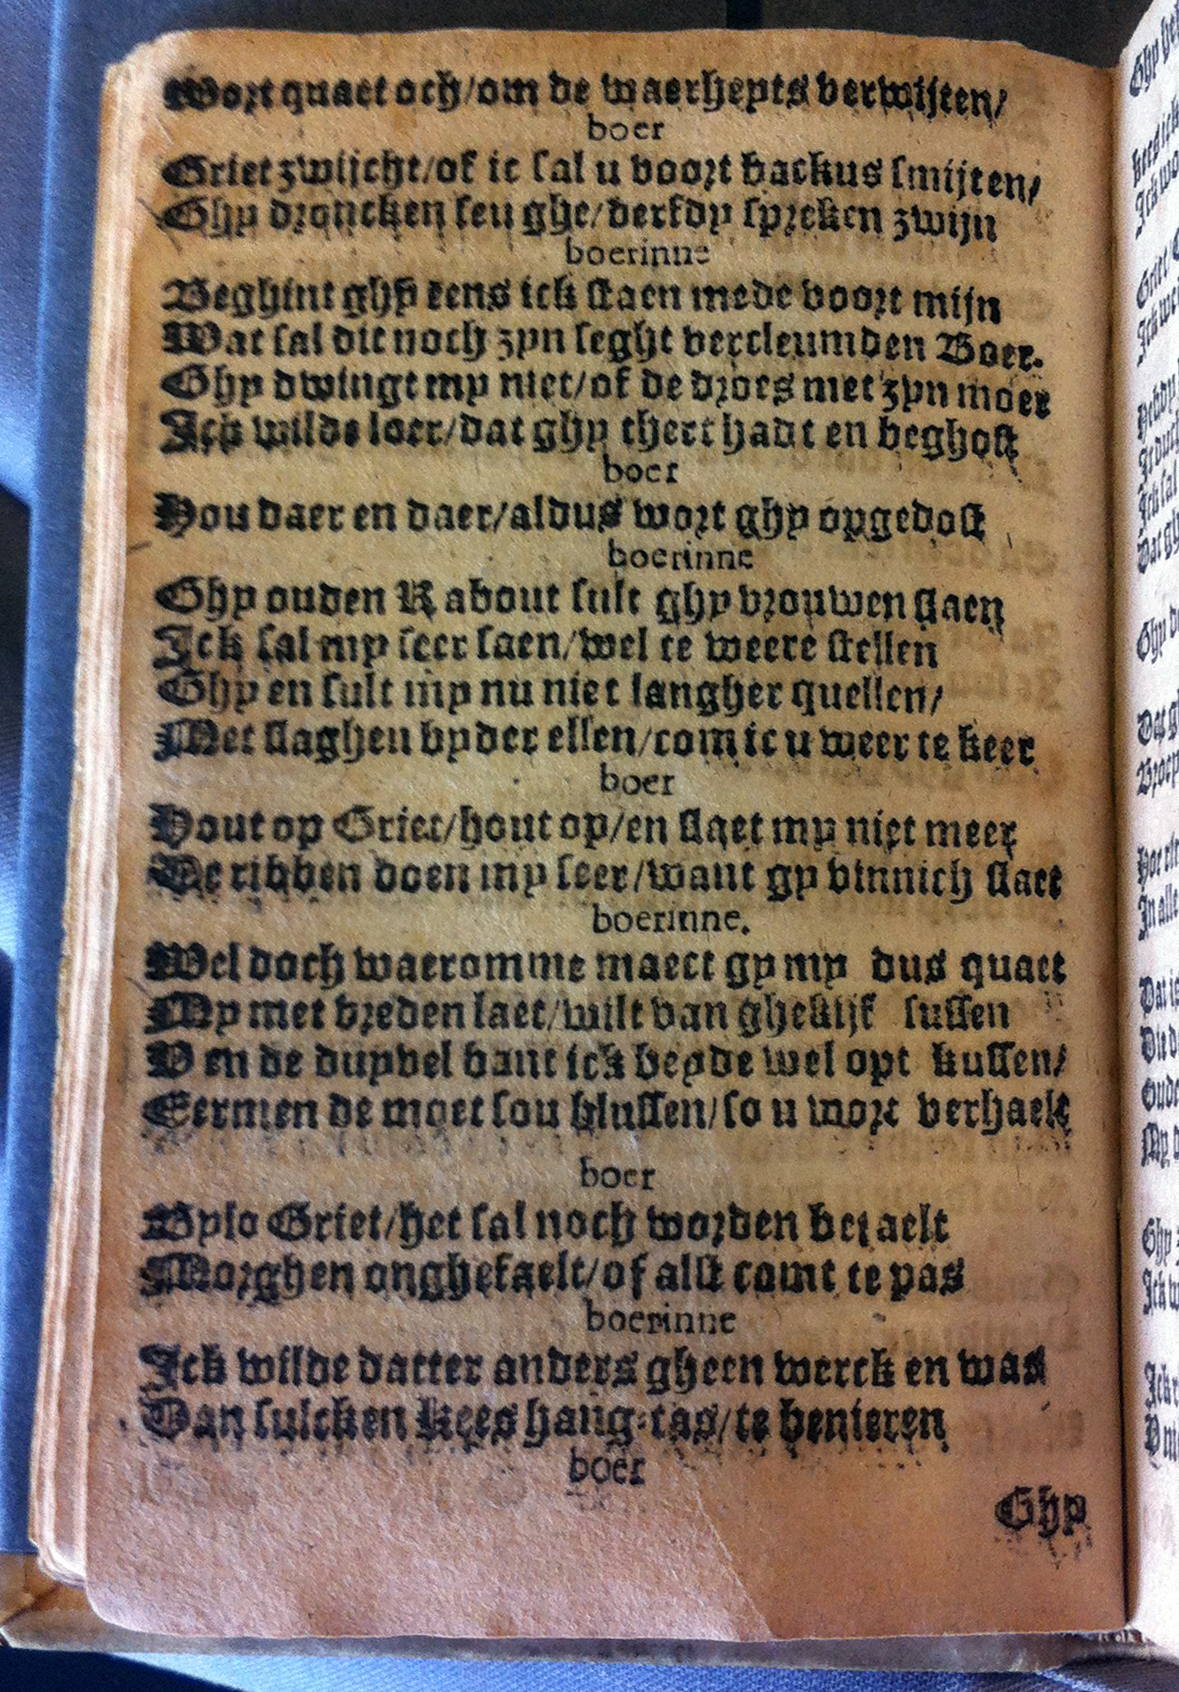 Wort quaet och/om de waerheyts verwijten/
boer
Griet zwijcht/of ic sal u voort backus smijten/
Ghy droncken seu ghe/derfdy spreken zwijn
boerinne
Beghint ghy eens ick slaen mede voort mijn
Wat sal dit noch zyn seght vercleumden Boer.
Ghy dwingt my niet/of de droes met zyn moer
Ick wilde loer/dat ghy thert hadt en beghost
boer
Hou daer en daer/aldus wort ghy opgedost
boerinne
Ghy ouden Rabout sult ghy vrouwen slaen
Ick sal my seer saen/wel te weere stellen
Ghy en sult my nu niet langher quellen/
Met slaghen byder ellen/com ic u weer te keer
boer
Hout op Griet/hout op/en slaet my niet meer
De ribben doen my seer/want gy vinnich slaet
boerinne.
Wel doch waeromme maect gy my dus quaet
My met vreden laet/wilt van ghekijf sussen
V en de duyvel vant ick beyde wel opt kussen/
Eermen de moet sou blussen/so u wort verhaelt
boer
Bylo Griet/het sal noch worden betaelt
Morghen onghefaelt/of alst comt te pas
boerinne
Ick wilde datter anders gheen werck en was
Dan sulcken Kees hang-tas/te benieren
boer
Ghy